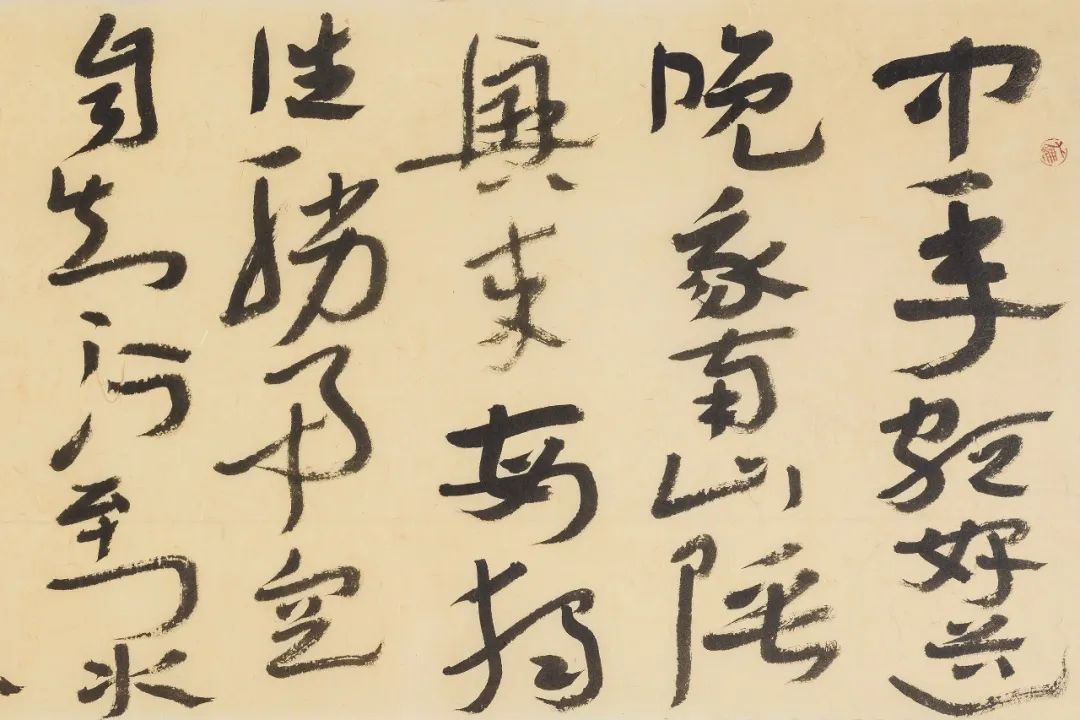 中歲頗好道
晚家南山陲
興來每獨
往勝事空
自知行到水